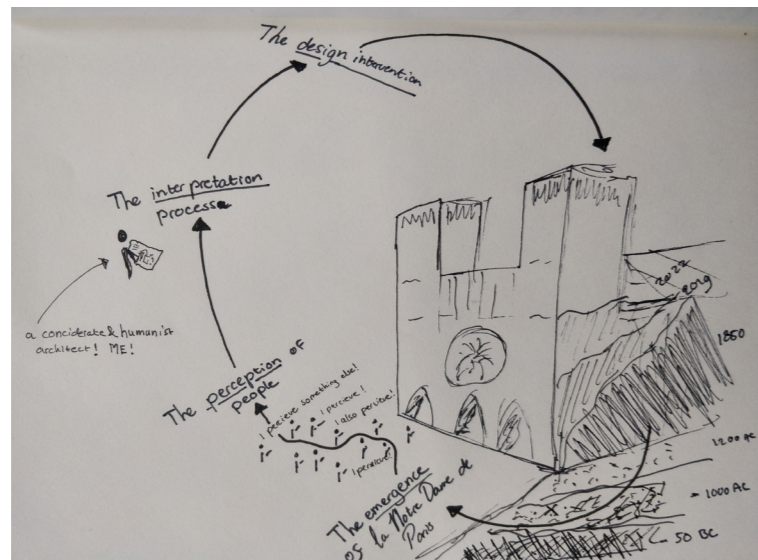 The design intervention
The interpretation
process
a conciderate & humanist
architect! ME!
The perception of
people
I percieve something else!
I percieve!
I also percive!
I percieve!
The emergence
of la Notre Dame de
Paris
2022
2019
1850
1200 AC
1000 AC
50 BC